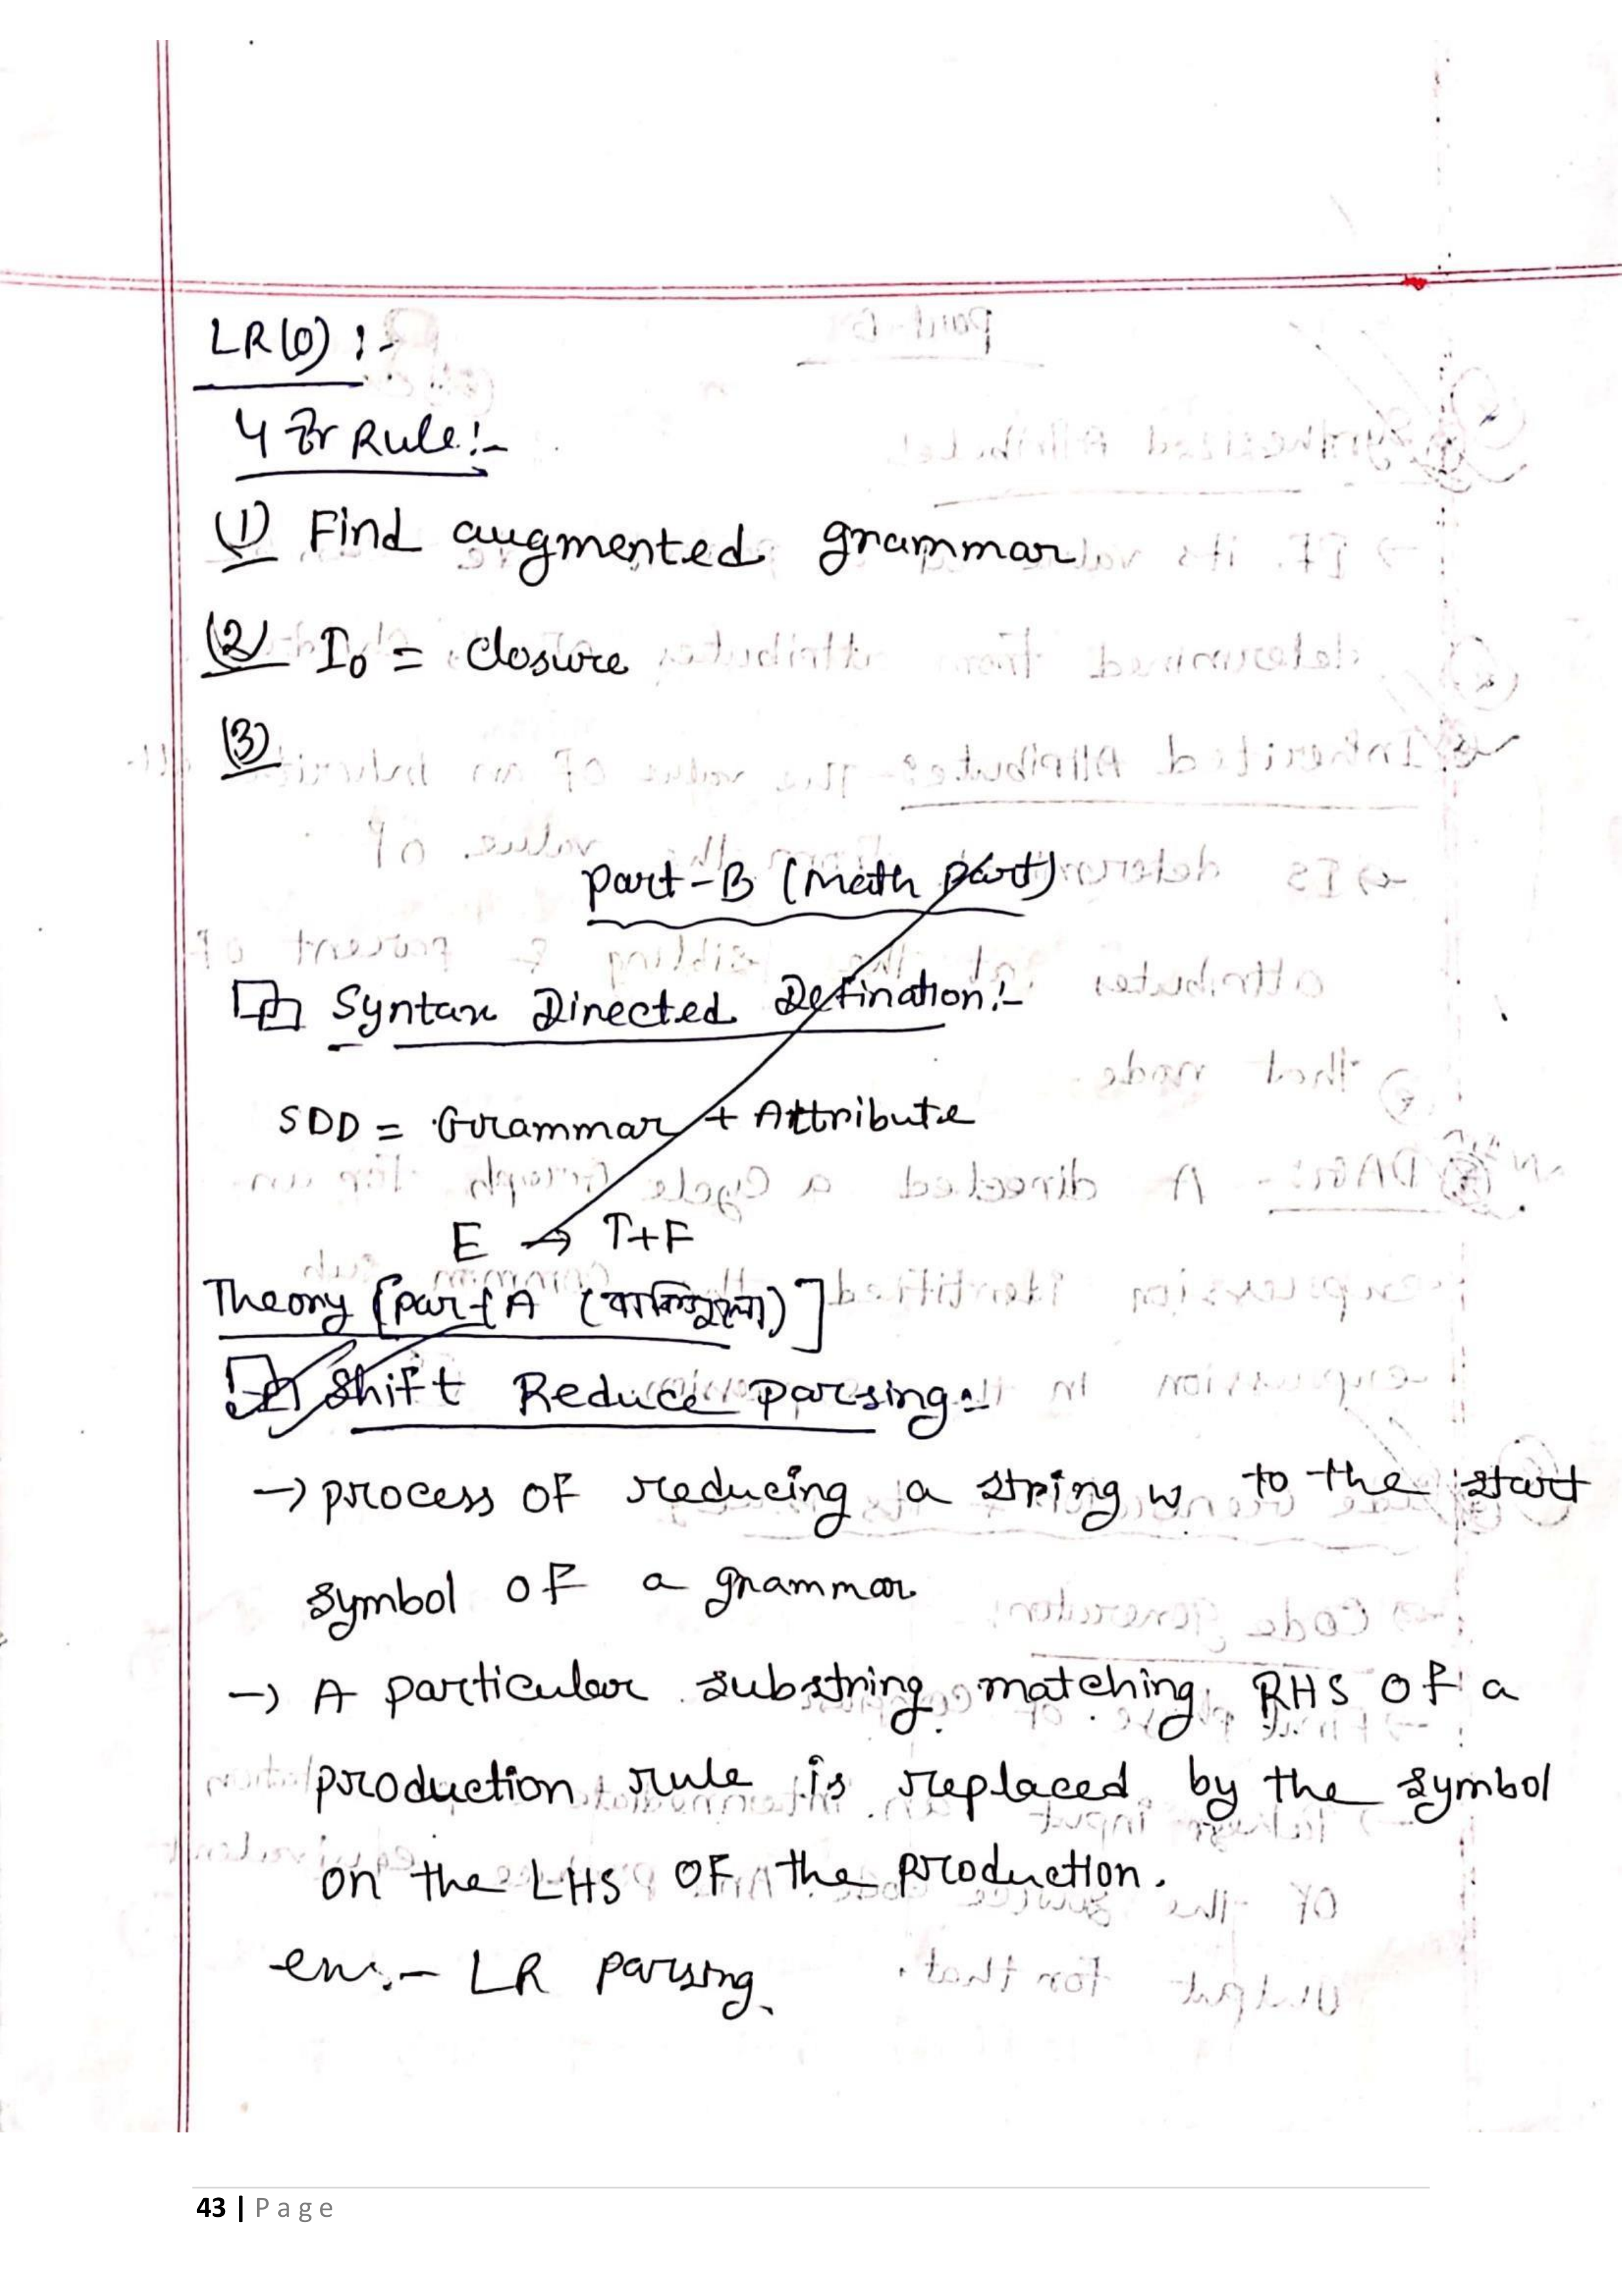 LR(0) :-
4 टा Rule :-
(1) Find augmented grammar
(2) I₀ = closure
(3)
part-B (Math part)
Syntax Directed Defination:-
SDD = Grammar + Attribute
E → T+F
Theory [part A (বাকিগুলা)]
Shift Reduce parsing:-
→ process OF reducing a string w to the start
symbol OF a grammar
→ A particular substring matching RHS OF a
production rule is replaced by the symbol
on the LHS OF the production.
ex:- LR parsing.
43 | Page